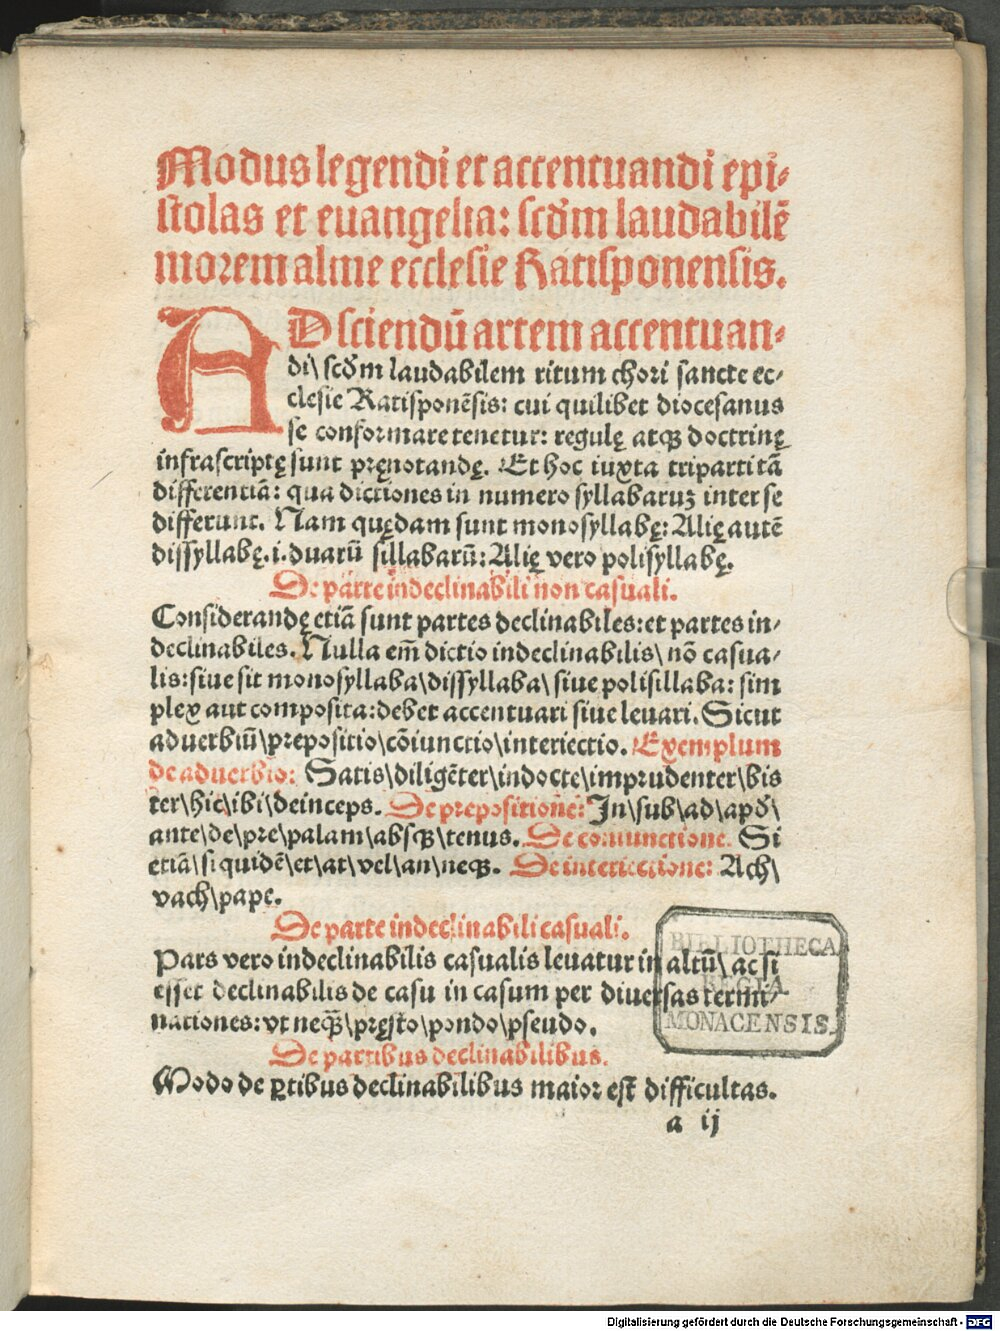 Modus legendi et accentuandi epi-
stolas et euangelia: scd'm laudabilē
morem alme ecclesie Ratisponensis.
AD sciendū artem accentuan-
di\ scd'm laudabilem ritum chori sancte ec-
clesie Ratisponēsis: cui quilibet diocesanus
se conformare tenetur: regulę atqꝫ doctrinę
infrascriptę sunt pręnotandę. Et hoc iuxta tripartitā
differentiā: qua dictiones in numero syllabaruꝫ inter se
differunt. Nam quędam sunt monosyllabę: Alię autē
dissyllabę .i. duarū sillabarū: Alię vero polisyllabę.
De parte indeclinabili non casuali.
Considerandę etiā sunt partes declinabiles: et partes in-
declinabiles. Nulla em̄ dictio indeclinabilis\ nō casua-
lis: siue sit monosyllaba\ dissyllaba\ siue polisillaba: sim
plex aut composita: debet accentuari siue leuari. Sicut
aduerbiū\ prepositio\ cōiunctio\ interiectio. Exemplum
de aduerbio: Satis\ diligēter\ indocte\ imprudenter\ bis
ter\ hic\ ibi\ deinceps. De prepositione: In\ sub\ ad\ apd'\
ante\ de\ pre\ palam\ absqꝫ\ tenus. De coniunctione. Si
etiā\ siquidē\ et\ at\ vel\ an\ neqꝫ. De interiectione: Ach\
vach\ pape.
De parte indeclinabili casuali.
Pars vero indeclinabilis casualis leuatur in altū\ ac si
esset declinabilis de casu in casum per diuersas termi-
nationes: vt neqꝫ\ pręsto\ pondo\ pseudo.
De partibus declinabilibus.
Modo de ꝑtibus declinabilibus maior est difficultas.
a ij
BIBLIOTHECA
REGIA
MONACENSIS.
Digitalisierung gefördert durch die Deutsche Forschungsgemeinschaft - DFG